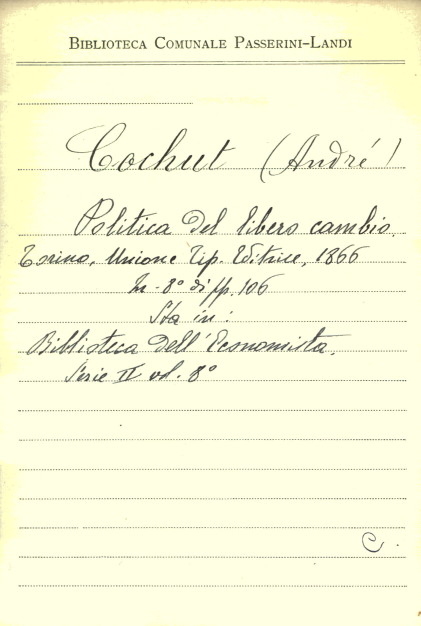 BIBLIOTECA COMUNALE PASSERINI-LANDI
Cochut (André)
Politica del libero cambio.
Torino, Unione Tip. Editrice, 1866
In-8° di pp. 106
Sta in:
Biblioteca dell'Economista.
Serie II vol. 8°
C.